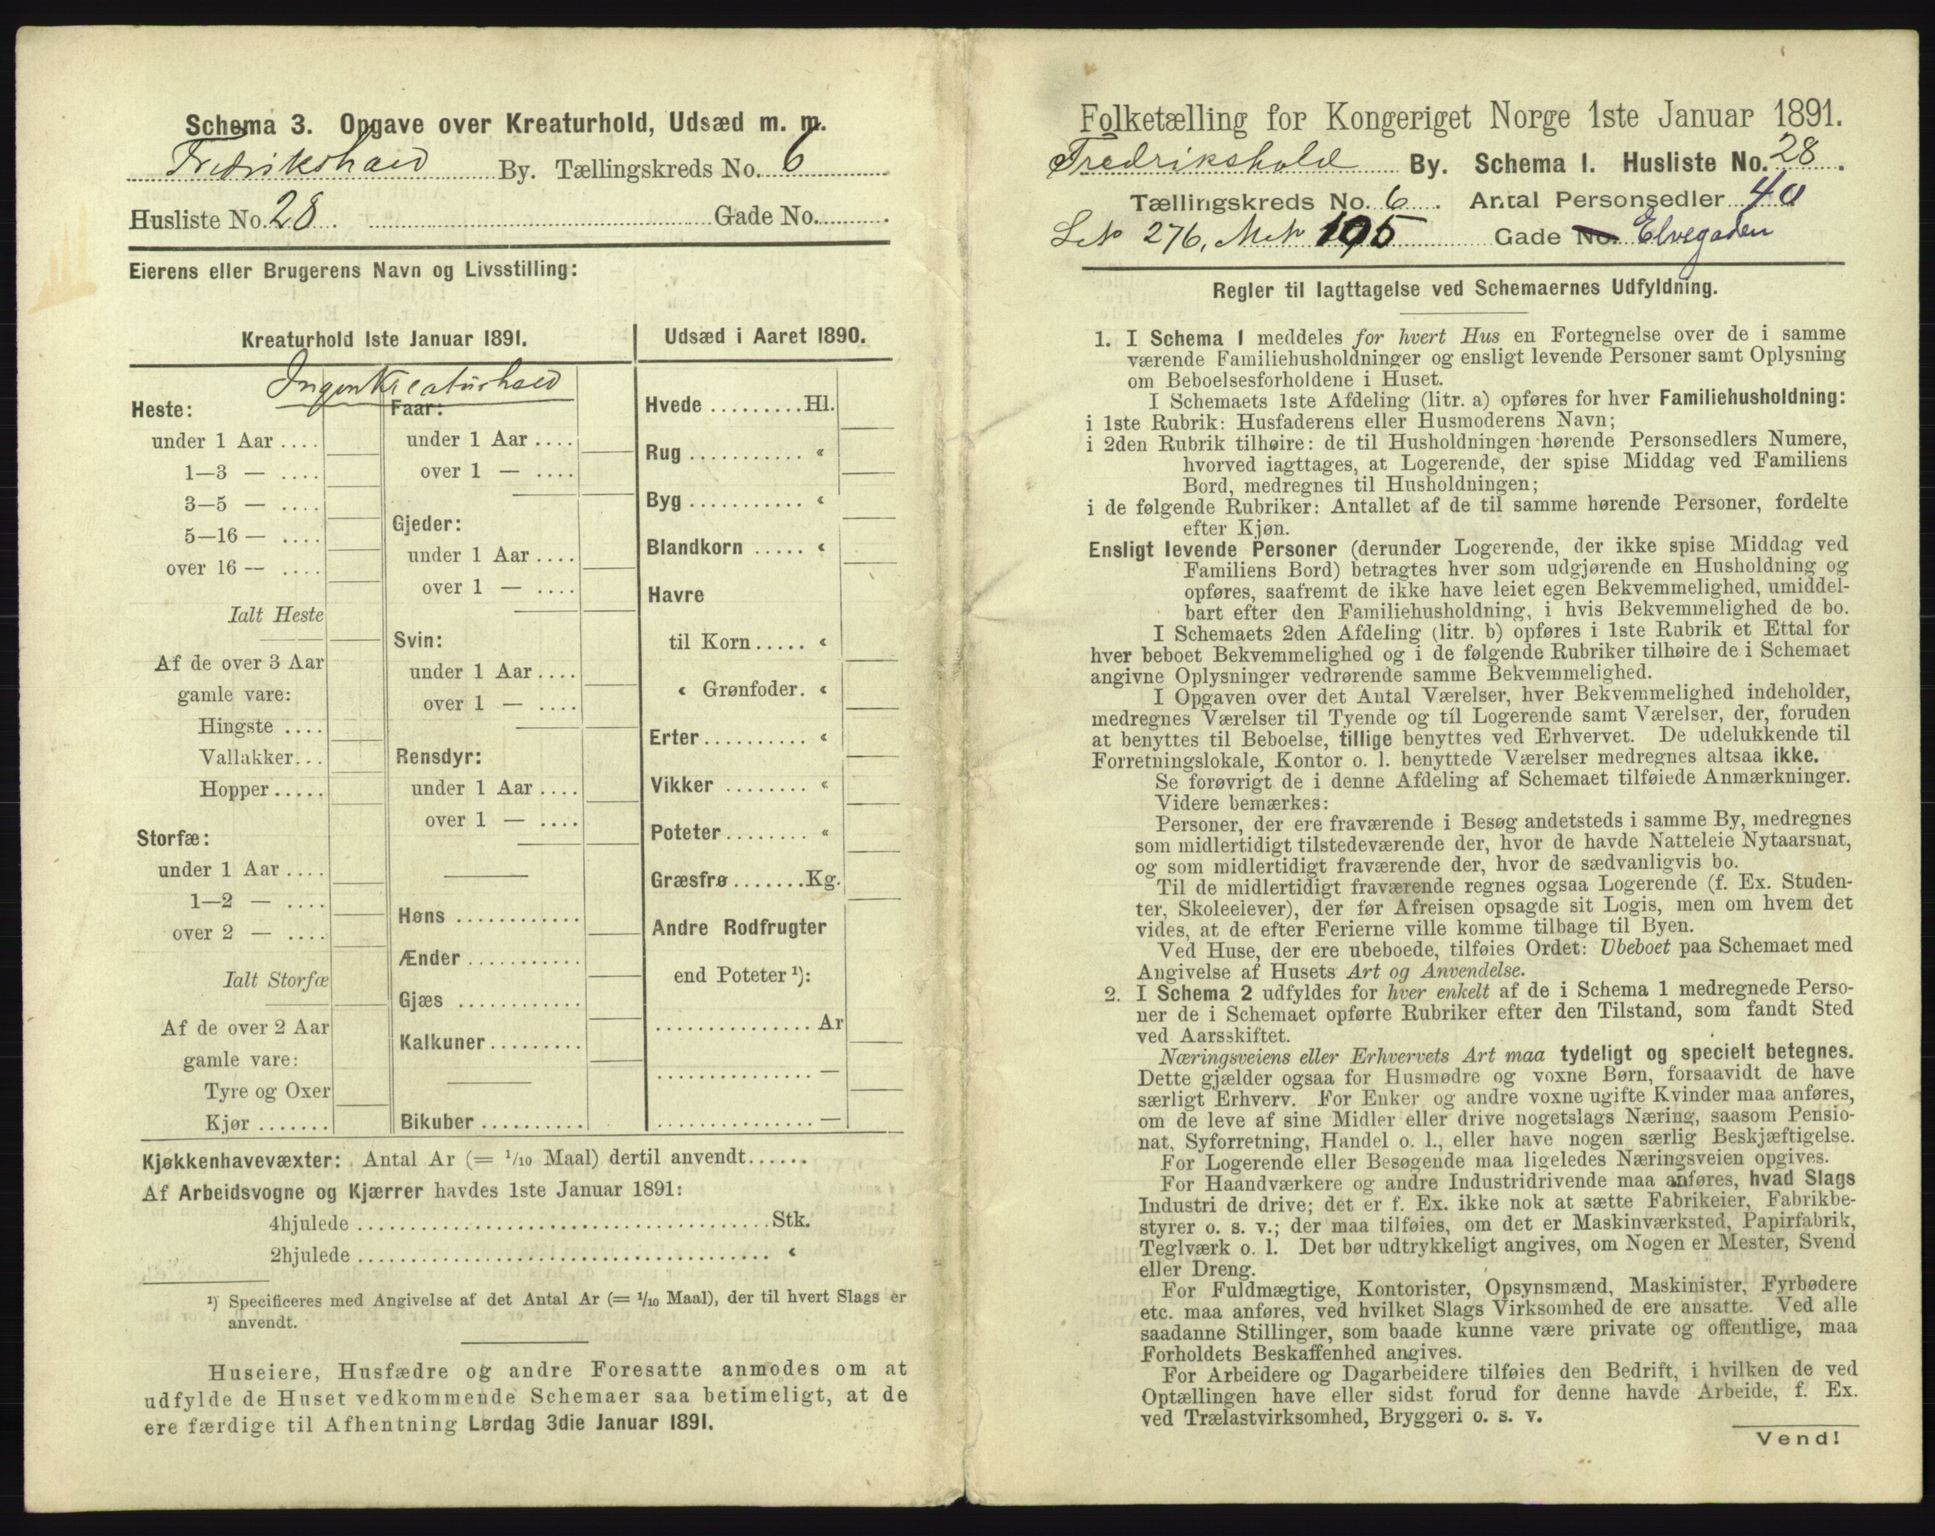 Schema 3. Opgave over Kreaturhold, Udsæd m. m.
Fredrikshald By. Tællingskreds No. 6
Husliste No. 28 Gade No.
Eierens eller Brugerens Navn og Livsstilling:
Kreaturhold 1ste Januar 1891.
Ingen Kreaturhold
Heste:
under 1 Aar ....
1—3 — ....
3—5 — ....
5—16 — ....
over 16 — ....
Ialt Heste
Af de over 3 Aar
gamle vare:
Hingste ....
Vallakker...
Hopper.....
Storfæ:
under 1 Aar ....
1—2 — ....
over 2 — ....
Ialt Storfæ
Af de over 2 Aar
gamle vare:
Tyre og Oxer
Kjør .......
Faar:
under 1 Aar ....
over 1 — ....
Gjeder:
under 1 Aar ....
over 1 — ....
Svin:
under 1 Aar ....
over 1 — ....
Rensdyr:
under 1 Aar ....
over 1 — ....
Høns ............
Ænder ...........
Gjæs ............
Kalkuner.........
Bikuber ..........
Udsæd i Aaret 1890.
Hvede .........Hl.
Rug ........... «
Byg ........... «
Blandkorn ..... «
Havre
til Korn ..... «
« Grønfoder. «
Erter.......... «
Vikker ........ «
Poteter........ «
Græsfrø .......Kg.
Andre Rodfrugter
end Poteter ¹):
............... Ar
............... —
............... —
Kjøkkenhavevæxter: Antal Ar (= 1/10 Maal) dertil anvendt......
Af Arbeidsvogne og Kjærrer havdes 1ste Januar 1891:
4hjulede ........................................Stk.
2hjulede ........................................ «
¹) Specificeres med Angivelse af det Antal Ar (= 1/10 Maal), der til hvert Slags er
anvendt.
Huseiere, Husfædre og andre Foresatte anmodes om at
udfylde de Huset vedkommende Schemaer saa betimeligt, at de
ere færdige til Afhentning Lørdag 3die Januar 1891.
Folketælling for Kongeriget Norge 1ste Januar 1891.
Fredrikshald By. Schema 1. Husliste No. 28.
Tællingskreds No. 6. Antal Personsedler 40
Let 276, Met 195 Gade No. Elvegaden
Regler til Iagttagelse ved Schemaernes Udfyldning.
1. I Schema 1 meddeles for hvert Hus en Fortegnelse over de i samme
værende Familiehusholdninger og ensligt levende Personer samt Oplysning
om Beboelsesforholdene i Huset.
I Schemaets 1ste Afdeling (litr. a) opføres for hver Familiehusholdning:
i 1ste Rubrik: Husfaderens eller Husmoderens Navn;
i 2den Rubrik tilhøire: de til Husholdningen hørende Personsedlers Numere,
hvorved iagttages, at Logerende, der spise Middag ved Familiens
Bord, medregnes til Husholdningen;
i de følgende Rubriker: Antallet af de til samme hørende Personer, fordelte
efter Kjøn.
Ensligt levende Personer (derunder Logerende, der ikke spise Middag ved
Familiens Bord) betragtes hver som udgjørende en Husholdning og
opføres, saafremt de ikke have leiet egen Bekvemmelighed, umiddel-
bart efter den Familiehusholdning, i hvis Bekvemmelighed de bo.
I Schemaets 2den Afdeling (litr. b) opføres i 1ste Rubrik et Ettal for
hver beboet Bekvemmelighed og i de følgende Rubriker tilhøire de i Schemaet
angivne Oplysninger vedrørende samme Bekvemmelighed.
I Opgaven over det Antal Værelser, hver Bekvemmelighed indeholder,
medregnes Værelser til Tyende og til Logerende samt Værelser, der, foruden
at benyttes til Beboelse, tillige benyttes ved Erhvervet. De udelukkende til
Forretningslokale, Kontor o. l. benyttede Værelser medregnes altsaa ikke.
Se forøvrigt de i denne Afdeling af Schemaet tilføiede Anmærkninger.
Videre bemærkes:
Personer, der ere fraværende i Besøg andetsteds i samme By, medregnes
som midlertidigt tilstedeværende der, hvor de havde Natteleie Nytaarsnat,
og som midlertidigt fraværende der, hvor de sædvanligvis bo.
Til de midlertidigt fraværende regnes ogsaa Logerende (f. Ex. Studen-
ter, Skoleelever), der før Afreisen opsagde sit Logis, men om hvem det
vides, at de efter Ferierne ville komme tilbage til Byen.
Ved Huse, der ere ubeboede, tilføies Ordet: Ubeboet paa Schemaet med
Angivelse af Husets Art og Anvendelse.
2. I Schema 2 udfyldes for hver enkelt af de i Schema 1 medregnede Perso-
ner de i Schemaet opførte Rubriker efter den Tilstand, som fandt Sted
ved Aarsskiftet.
Næringsveiens eller Erhvervets Art maa tydeligt og specielt betegnes.
Dette gjælder ogsaa for Husmødre og voxne Børn, forsaavidt de have
særligt Erhverv. For Enker og andre voxne ugifte Kvinder maa anføres,
om de leve af sine Midler eller drive nogetslags Næring, saasom Pensio-
nat, Syforretning, Handel o. l., eller have nogen særlig Beskjæftigelse.
For Logerende eller Besøgende maa ligeledes Næringsveien opgives.
For Haandværkere og andre Industridrivende maa anføres, hvad Slags
Industri de drive; det er f. Ex. ikke nok at sætte Fabrikeier, Fabrikbe-
styrer o. s. v.; der maa tilføies, om det er Maskinværksted, Papirfabrik,
Teglværk o. l. Det bør udtrykkeligt angives, om Nogen er Mester, Svend
eller Dreng.
For Fuldmægtige, Kontorister, Opsynsmænd, Maskinister, Fyrbødere
etc. maa anføres, ved hvilket Slags Virksomhed de ere ansatte. Ved alle
saadanne Stillinger, som baade kunne være private og offentlige, maa
Forholdets Beskaffenhed angives.
For Arbeidere og Dagarbeidere tilføies den Bedrift, i hvilken de ved
Optællingen have eller sidst forud for denne havde Arbeide, f. Ex.
ved Trælastvirksomhed, Bryggeri o. s. v.
Vend!